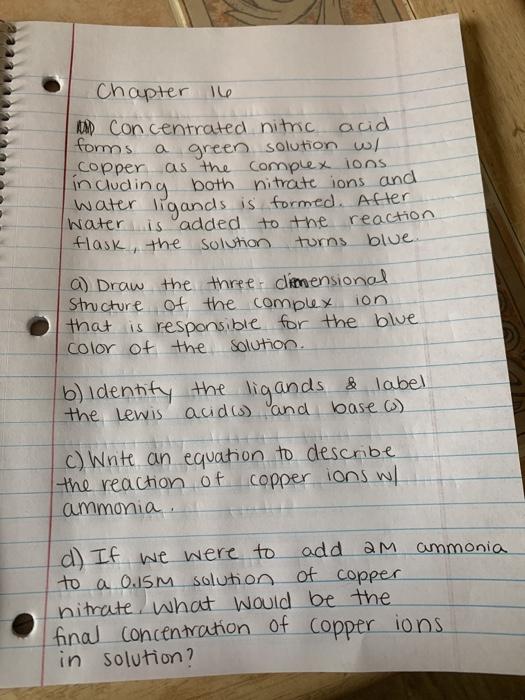 Chapter 16
Concentrated nitric acid
forms a green solution w/
copper as the complex ions
including both nitrate ions and
water ligands is formed. After
water is added to the reaction
flask, the solution turns blue.
a) Draw the three-dimensional
structure of the complex ion
that is responsible for the blue
color of the solution.
b) identify the ligands & label
the Lewis acid(s) and base(s)
c) Write an equation to describe
the reaction of copper ions w/
ammonia.
d) If we were to add 2M ammonia
to a 0.15M solution of copper
nitrate, what would be the
final concentration of copper ions
in solution?